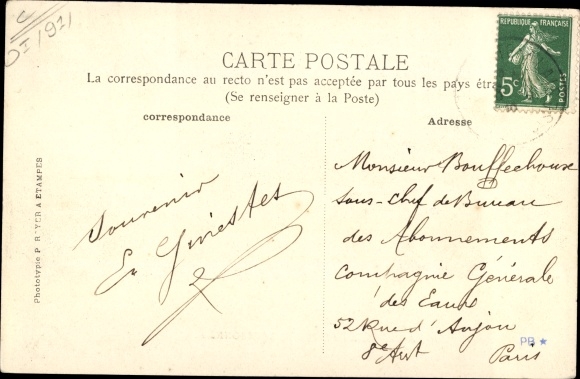 CARTE POSTALE
La correspondance au recto n'est pas acceptée par tous les pays étra
(Se renseigner à la Poste)
REPUBLIQUE FRANÇAISE
5c
POSTES
correspondance
Souvenir
Adresse
Monsieur Bouffechoux
sous-chef de Bureau
des Abonnements
Compagnie Générale
des Eaux
52 Rue d'Anjou
8e Arrt
Paris
PB ★
Phototypie P. ROYER A ETAMPES